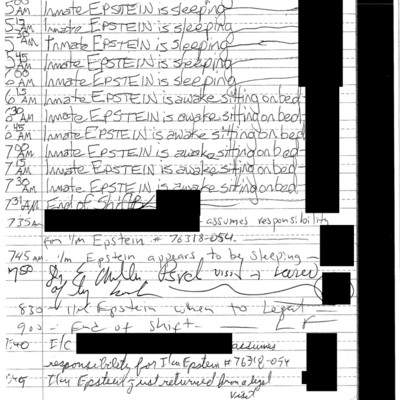 5 AM Inmate EPSTEIN is sleeping
5 15 AM Inmate EPSTEIN is sleeping
5 AM Inmate EPSTEIN is sleeping
5 45 AM Inmate EPSTEIN is sleeping
AM Inmate EPSTEIN is sleeping
6 15 AM Inmate EPSTEIN is awake sitting on bed
6 30 AM Inmate EPSTEIN is awake sitting on bed
6 45 AM Inmate EPSTEIN is awake sitting on bed
7 00 AM Inmate EPSTEIN is awake sitting on bed
7 15 AM Inmate EPSTEIN is awake sitting on bed
7 30 AM Inmate EPSTEIN is awake sitting on bed
AM End of Shift
735AM assumes responsibility
for I/m Epstein # 76318-054
745AM I/m Epstein appears to be sleeping
750 visit
830 - I/m Epstein when to Legal
900 - End of Shift
:40 I/C assumes
responsibility for I/m Epstein # 76318-054
I/m Epstein just returned from legal
visit